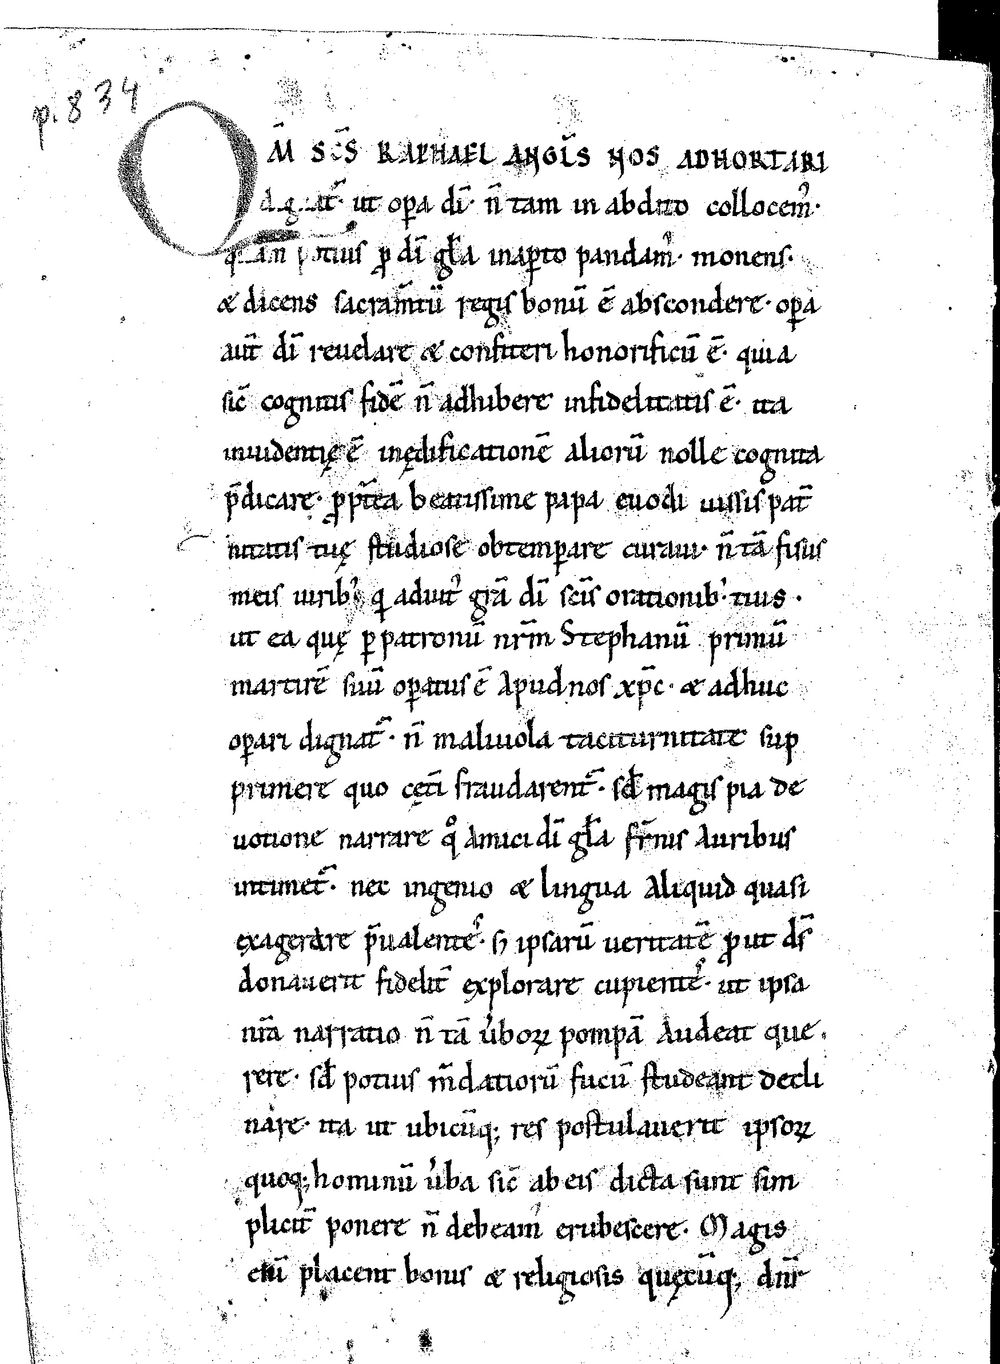 p. 834
QM̄ SC̄S RAPHAEL ANGL̄S NOS ADHORTARI
ut opa dī· n̄ tam in abdito collocem᷒·
potius ꝓ dī gl̄a inapto pandam᷒· monens·
& dicens sacram̄tū regis bonū ē abscondere· opa
aut̄ dī reuelare & confiteri honorificū ē· quia
sic̄ cognitis fidē n̄ adhibere infidelitatis ē· ita
inuidentię ē inędificationē aliorū nolle cognita
p̄dicare· ꝓpt̄ea beatissime papa euodi iussis pat̄
nitatis tuę studiose obtemꝑare curaui· n̄ tā fisus
meis uirib᷒ q̄ adiut᷒ grā dī sc̄is orationib᷒ tuis·
ut ea quę ꝑ patronū nr̄m Stephanū primū
martirē suū opatus ē Apud nos xp̄c· & adhuc
opari dignat᷒· n̄ maliuola taciturnitate sup
primere quo cęt̄i fraudarent᷒· sꝺ magis pia de
uotione narrare qͦ Amici dī gl̄a fr̄nis Auribus
intimet᷒· nec ingenio & lingua Aliquid quasi
exagerare p̄ualentes· sꝫ ipsarū ueritatē ꝓut ds̄
donauerit fidelit̄ explorare cupientes· ut ipsa
nr̄a narratio n̄ tā ūboꝝ pompā Audeat que
rere· sꝺ potius m̄datiorū fucū studeant decli
nare· ita ut ubicūq; res postulauerit ipsoꝝ
quoq; hominū ūba sic̄ ab eis dicta sunt sim
plicit̄ ponere n̄ debeam᷒ erubescere· Magis
enī placent bonis & religiosis quęcūq; dn̄r